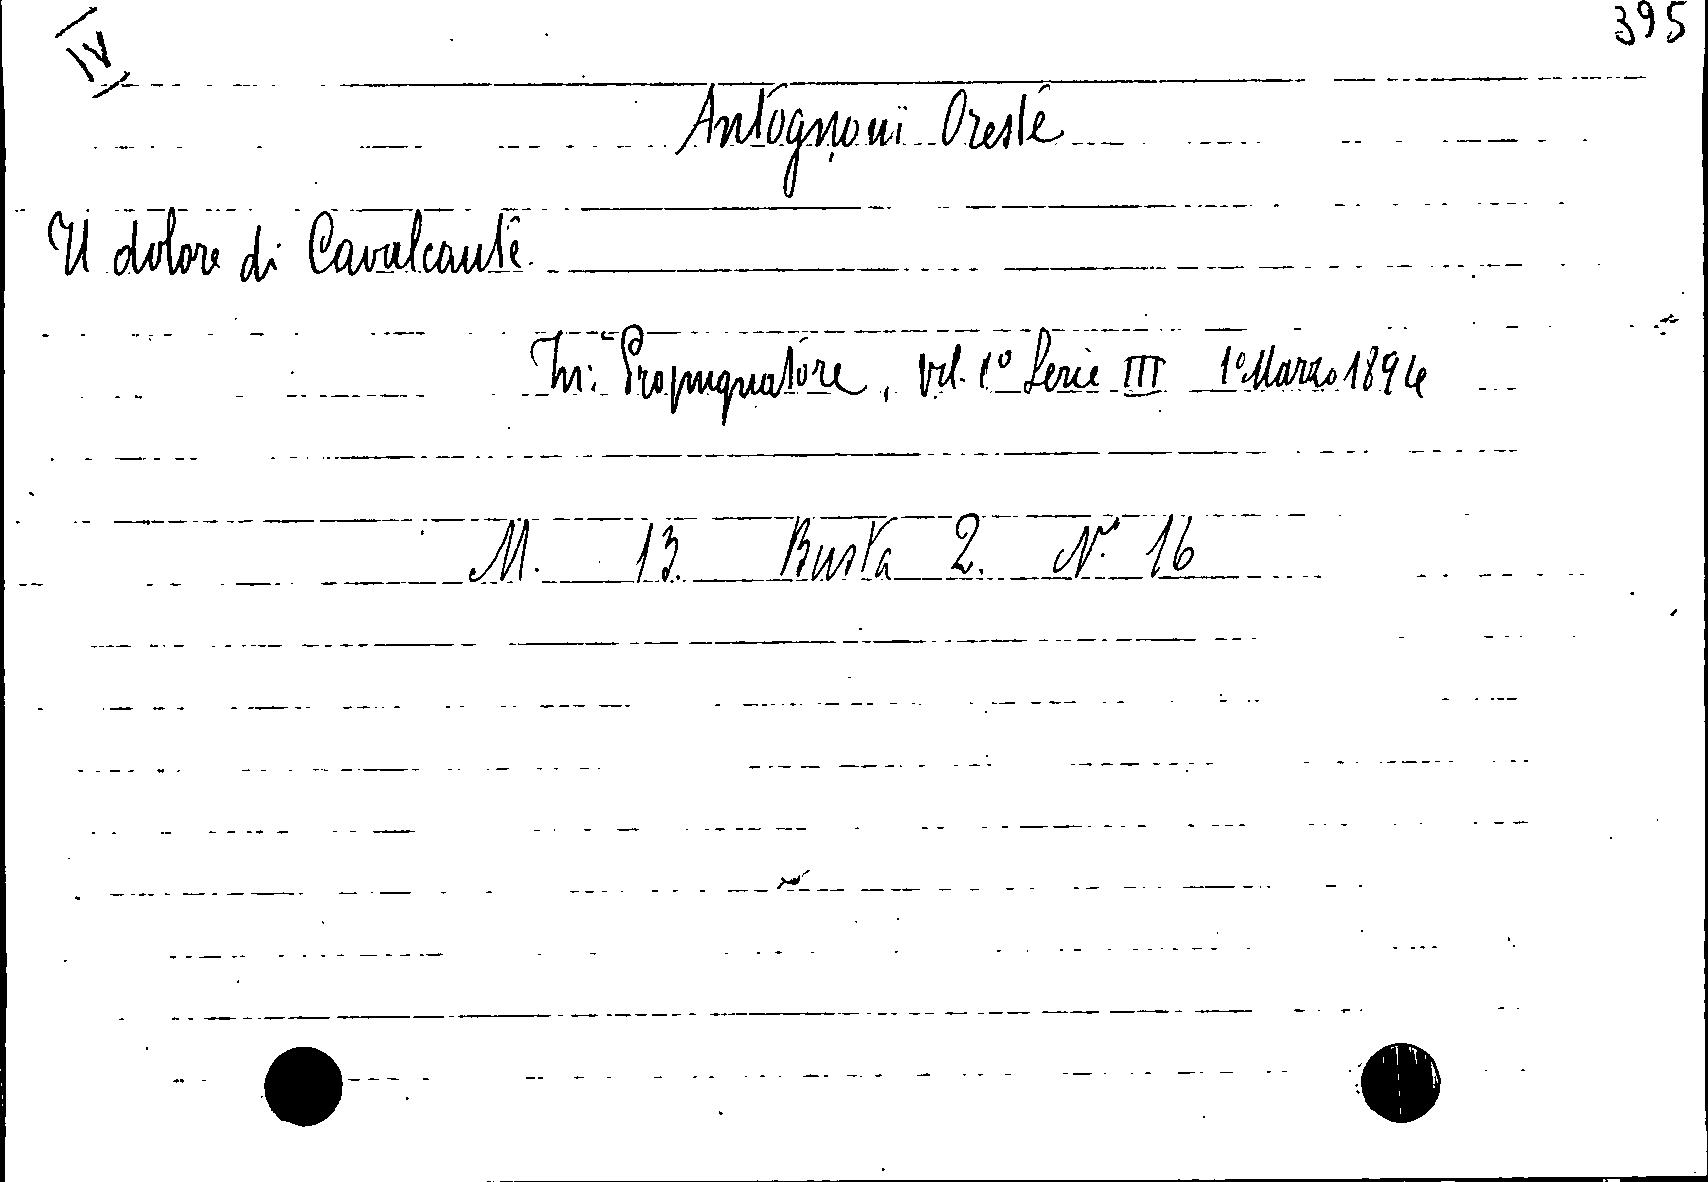 IV
395
Antognoni Oreste
Il dolore di Cavalcante
In: Propugnatore, vol. 1º Serie III 1º Marzo 1894
M. 13. Busta 2. Nº 16